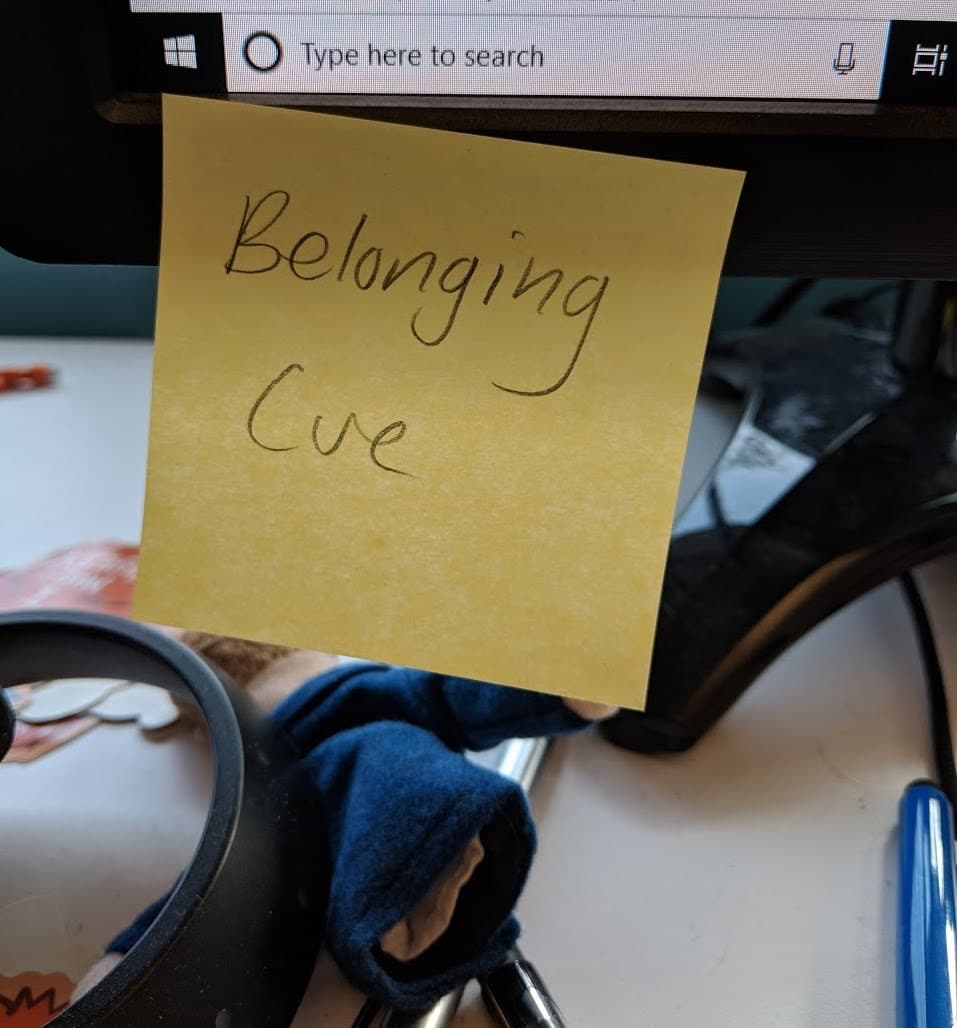 Type here to search
Belonging
Cue